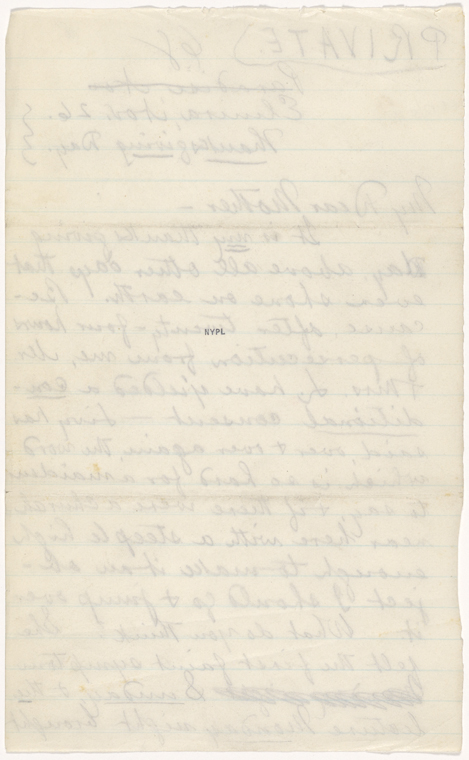 PRIVATE. 68
Elmira Nov. 26.
Thanksgiving Day.
My Dear Mother—
It is my thanksgiving
day, above all other days that
ever shone on earth. Be-
cause, after twenty-four hours
of persecution from me,
& Mrs. L. have yielded a con-
ditional consent — Livy has
said over & over again, the word
which is so hard for a maiden
to say, & if there were a church
near here with a steeple high
enough to make it an ob-
ject I should go & jump over
it. What do you think? She
felt the first faint symptom
Sunday, & the
lecture Monday night brought
NYPL